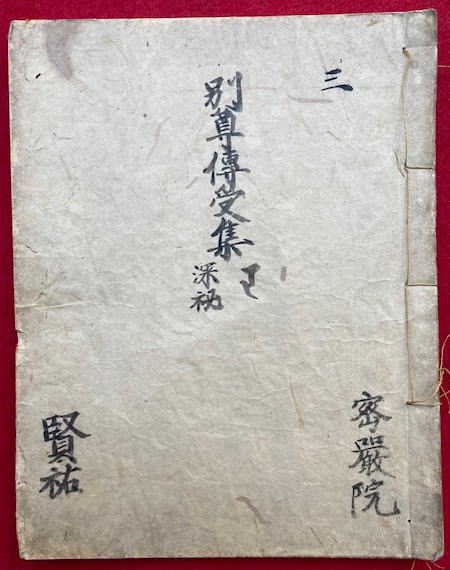 三
別尊傳受集
深祕
密嚴院
賢祐